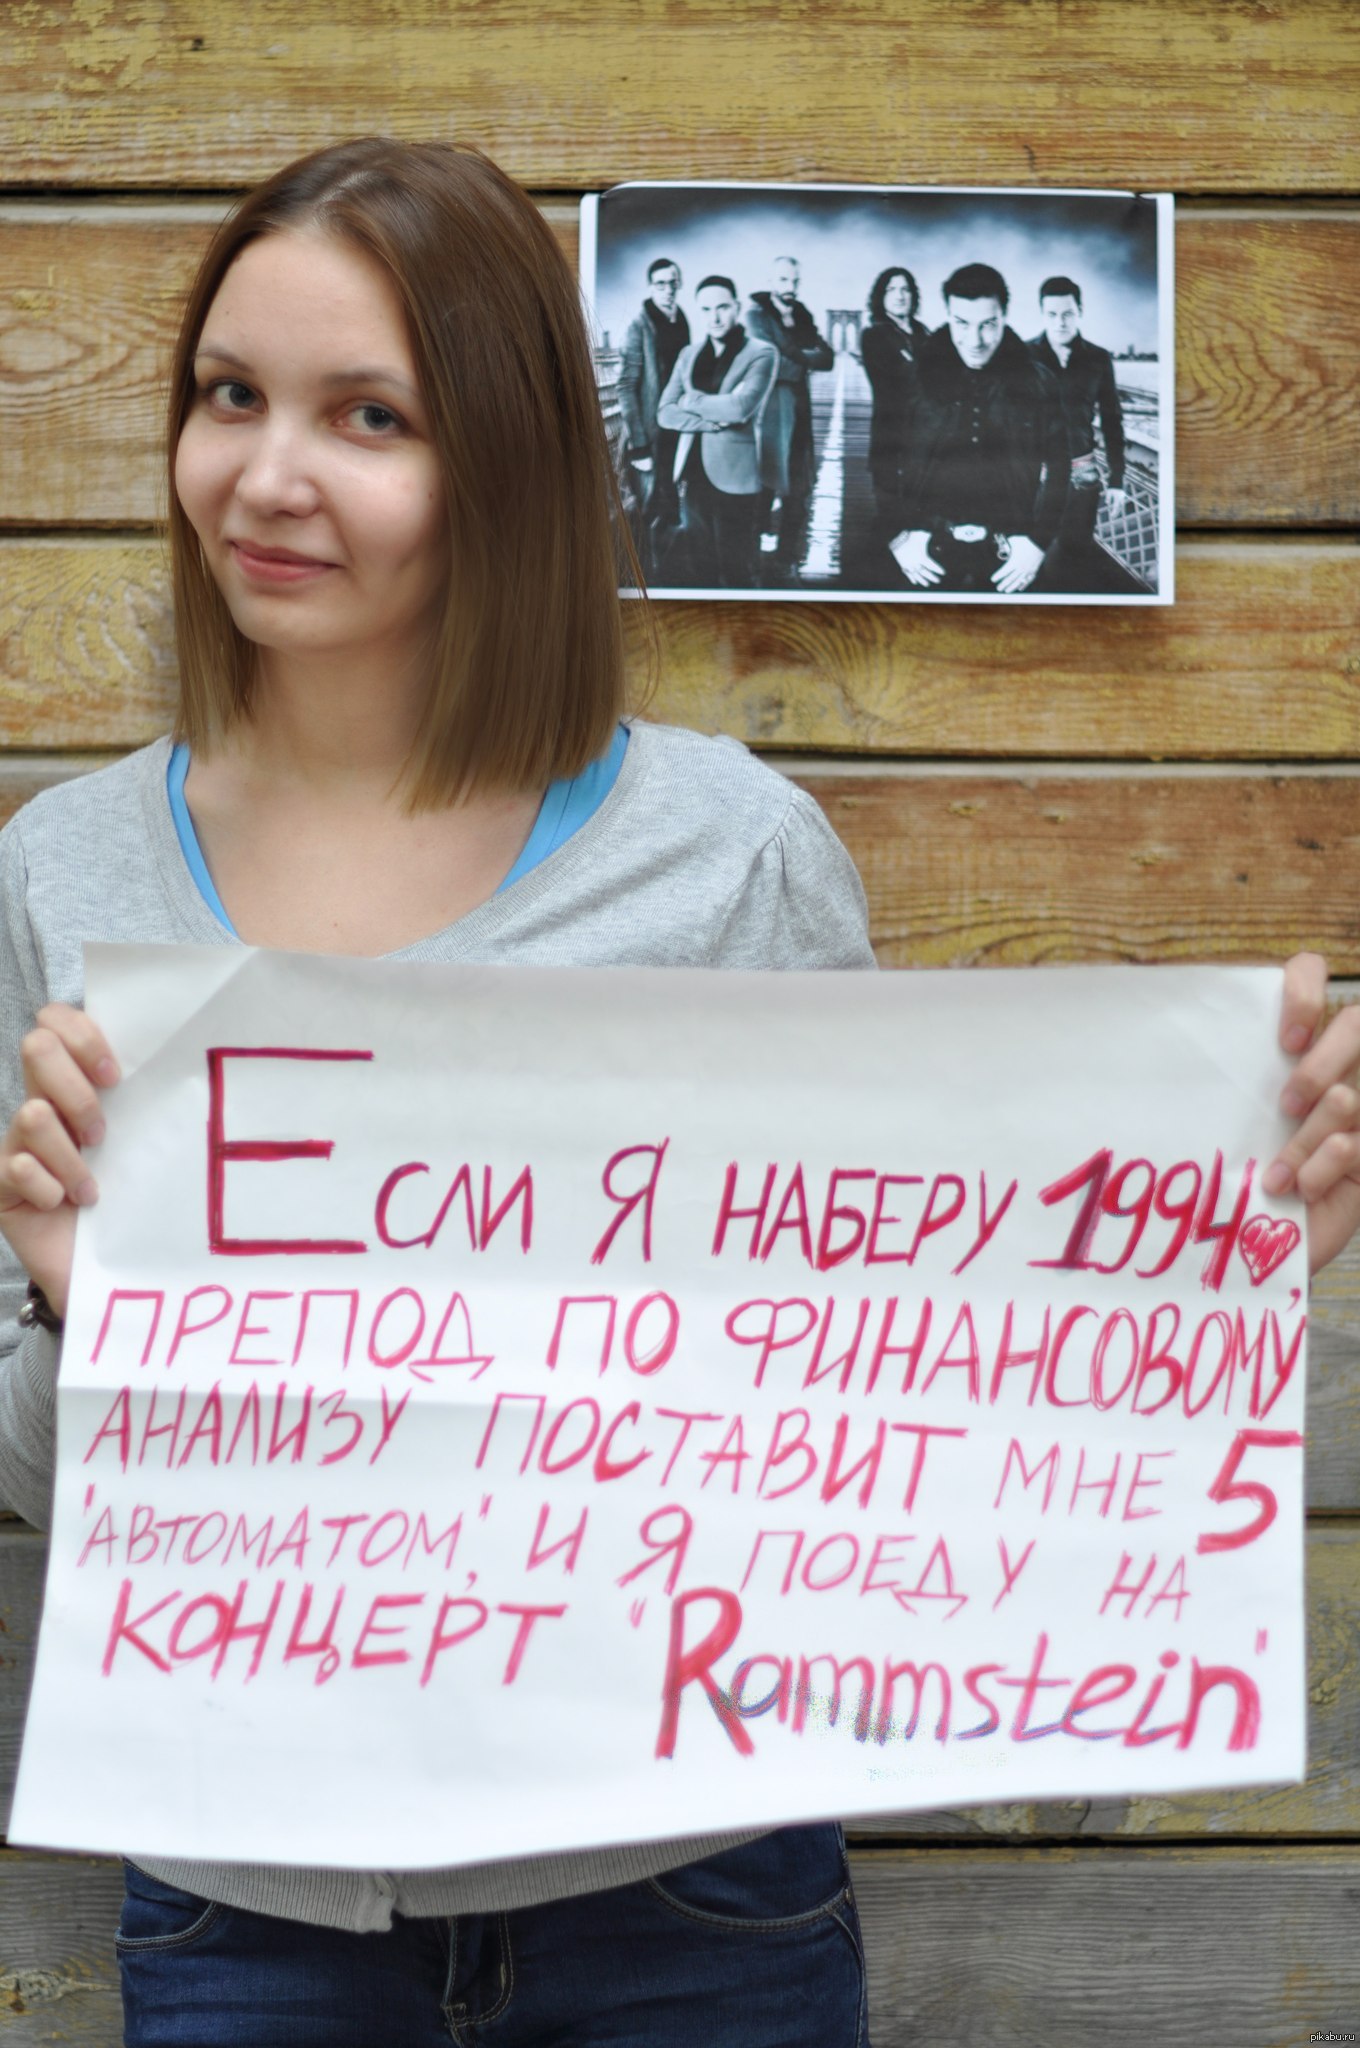 Если я наберу 1994,
препод по финансовому
анализу поставит мне 5
"автоматом", и я поеду на
концерт "Rammstein"
pikabu.ru